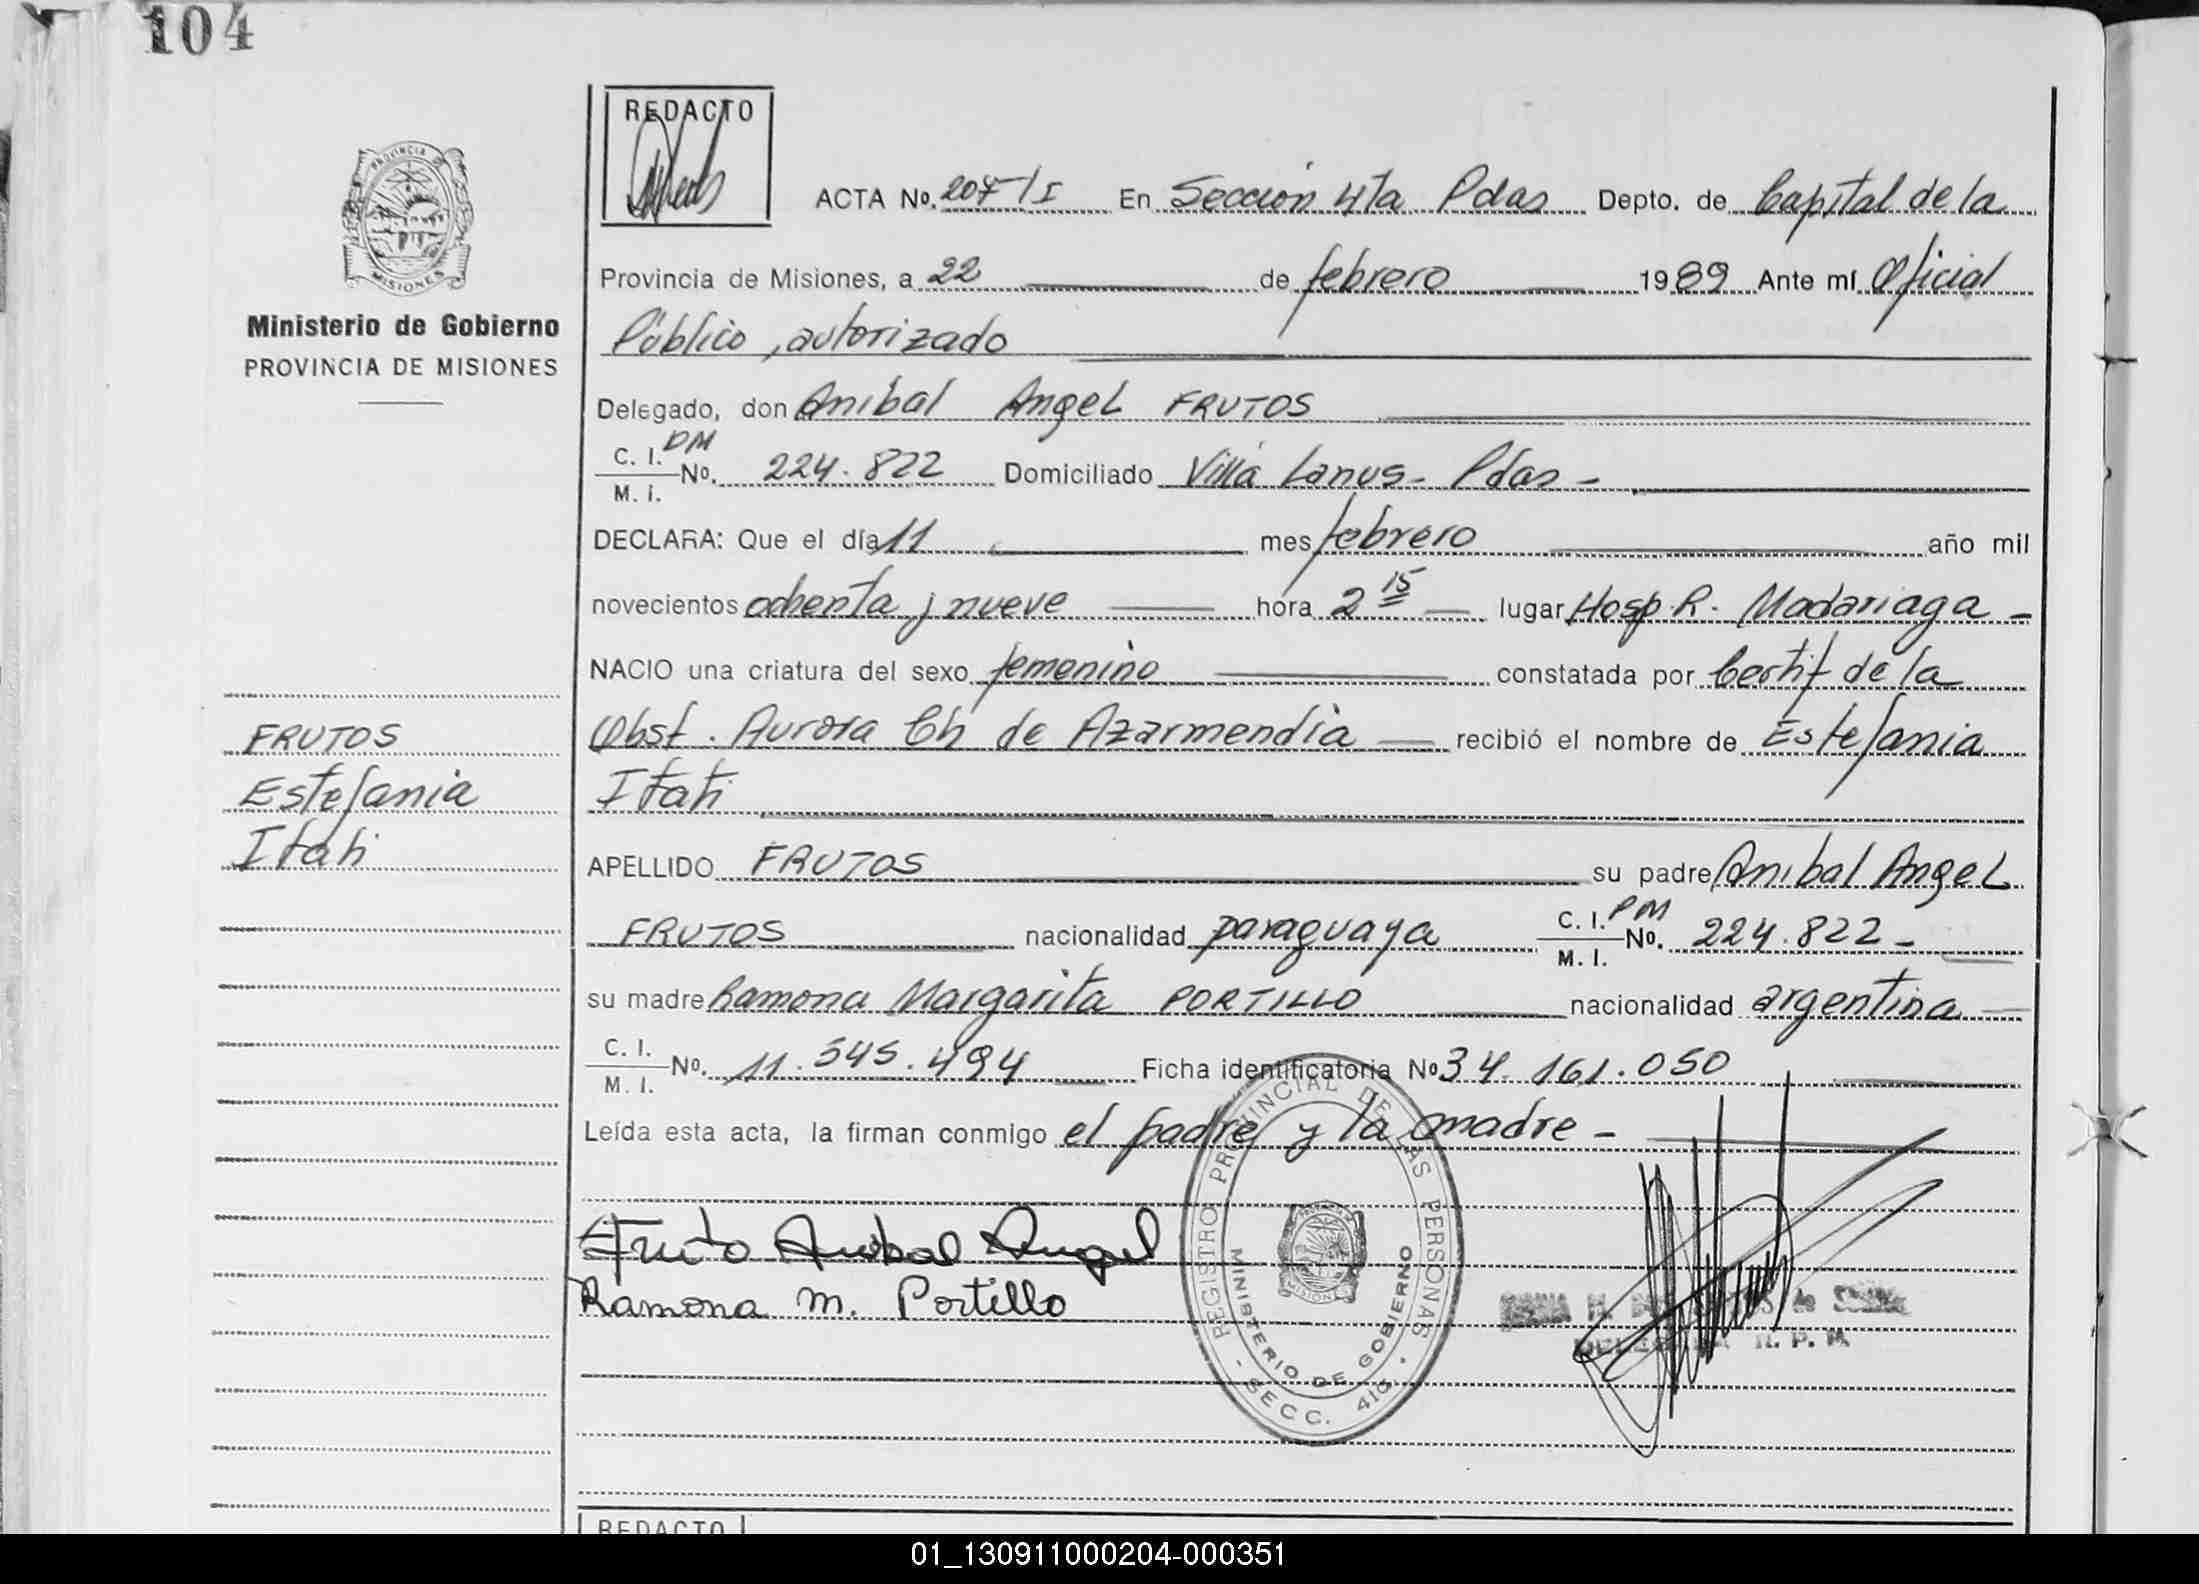 104
REDACTO
PROVINCIA DE
MISIONES
Ministerio de Gobierno
PROVINCIA DE MISIONES
ACTA No. 207/I En Sección 4ta Pdas Depto. de Capital de la
Provincia de Misiones, a 22 de febrero 1989 Ante mí Oficial
Público, autorizado
Delegado, don Anibal Angel FRUTOS
C. I. DM
M. I. No. 224.822 Domiciliado Villa Lanus - Pdas -
DECLARA: Que el día 11 mes febrero año mil
novecientos ochenta y nueve hora 2 15 lugar Hosp. R. Madariaga -
NACIO una criatura del sexo femenino constatada por Certif de la
Obst. Aurora Ch de Azarmendia recibió el nombre de Estefania
Itati
APELLIDO FRUTOS su padre Anibal Angel
FRUTOS nacionalidad paraguaya C. I. DM M. I. No. 224.822 -
su madre Ramona Margarita PORTILLO nacionalidad argentina
C. I. M. I. No. 11.545.494 Ficha identificatoria No 34.161.050
Leída esta acta, la firman conmigo el padre y la madre -
FRUTOS
Estefania
Itati
Fruto Anibal Angel
Ramona M. Portillo
REGISTRO PROVINCIAL DE LAS PERSONAS
MINISTERIO DE GOBIERNO
MISIONES
SECC. 4ta.
R. P. M.
REDACTO
01_130911000204-000351